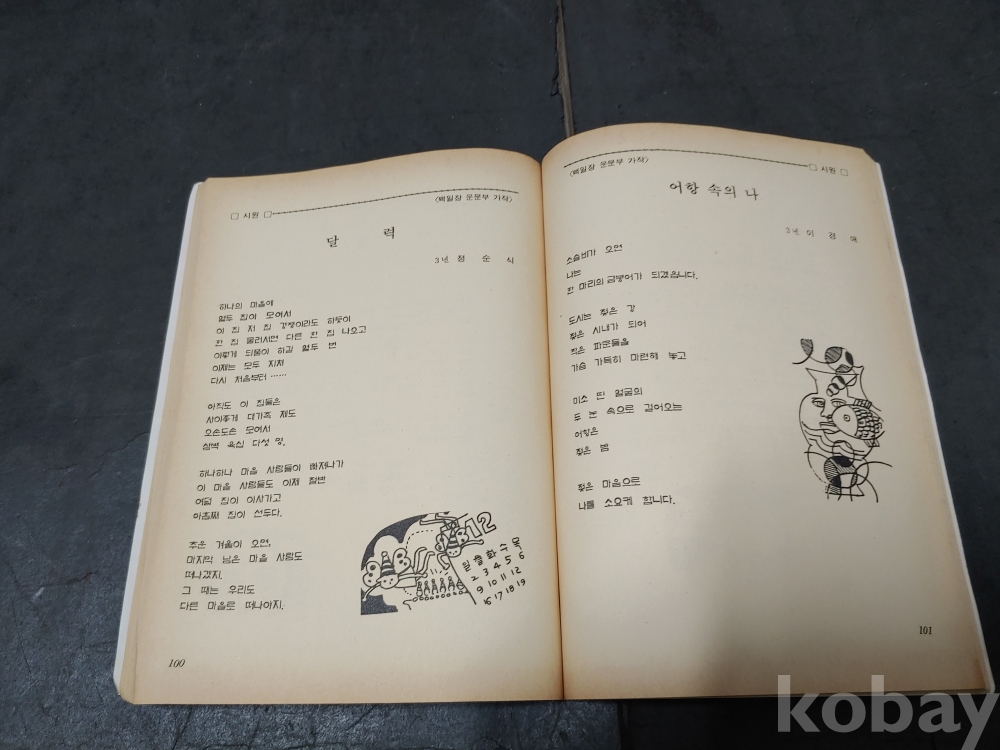 □ 시원 □
〈백일장 운문부 가작〉
달 력
3년 정 순 식
하나의 마을에
열두 집이 모여서
이 집 저 집 경쟁이라도 하듯이
한 집 물러서면 다른 한 집 나오고
이렇게 되풀이 하길 열두 번
이제는 모두 지쳐
다시 처음부터 ……
아직도 이 집들은
사이좋게 대가족 제도
오손도손 모여서
삼백 육십 다섯 명.
하나하나 마을 사람들이 빠져나가
이 마을 사람들도 이제 절반
여덟 집이 이사가고
아홉째 집이 선두다.
추운 겨울이 오면,
마지막 남은 마을 사람도
떠나겠지.
그 때는 우리도
다른 마을로 떠나야지.
12
일 월 화 수 목
2 3 4 5 6
9 10 11 12
16 17 18 19
100
〈백일장 운문부 가작〉
□ 시원 □
어항 속의 나
3년 이 경 애
소슬비가 오면
나는
한 마리의 금붕어가 되겠읍니다.
도시는 젖은 강
젖은 시내가 되어
작은 파문들을
가슴 가득히 마련해 놓고
미소 띤 얼굴의
두 눈 속으로 걸어오는
어항은
젖은 밤
젖은 마음으로
나를 소요케 합니다.
101
kobay